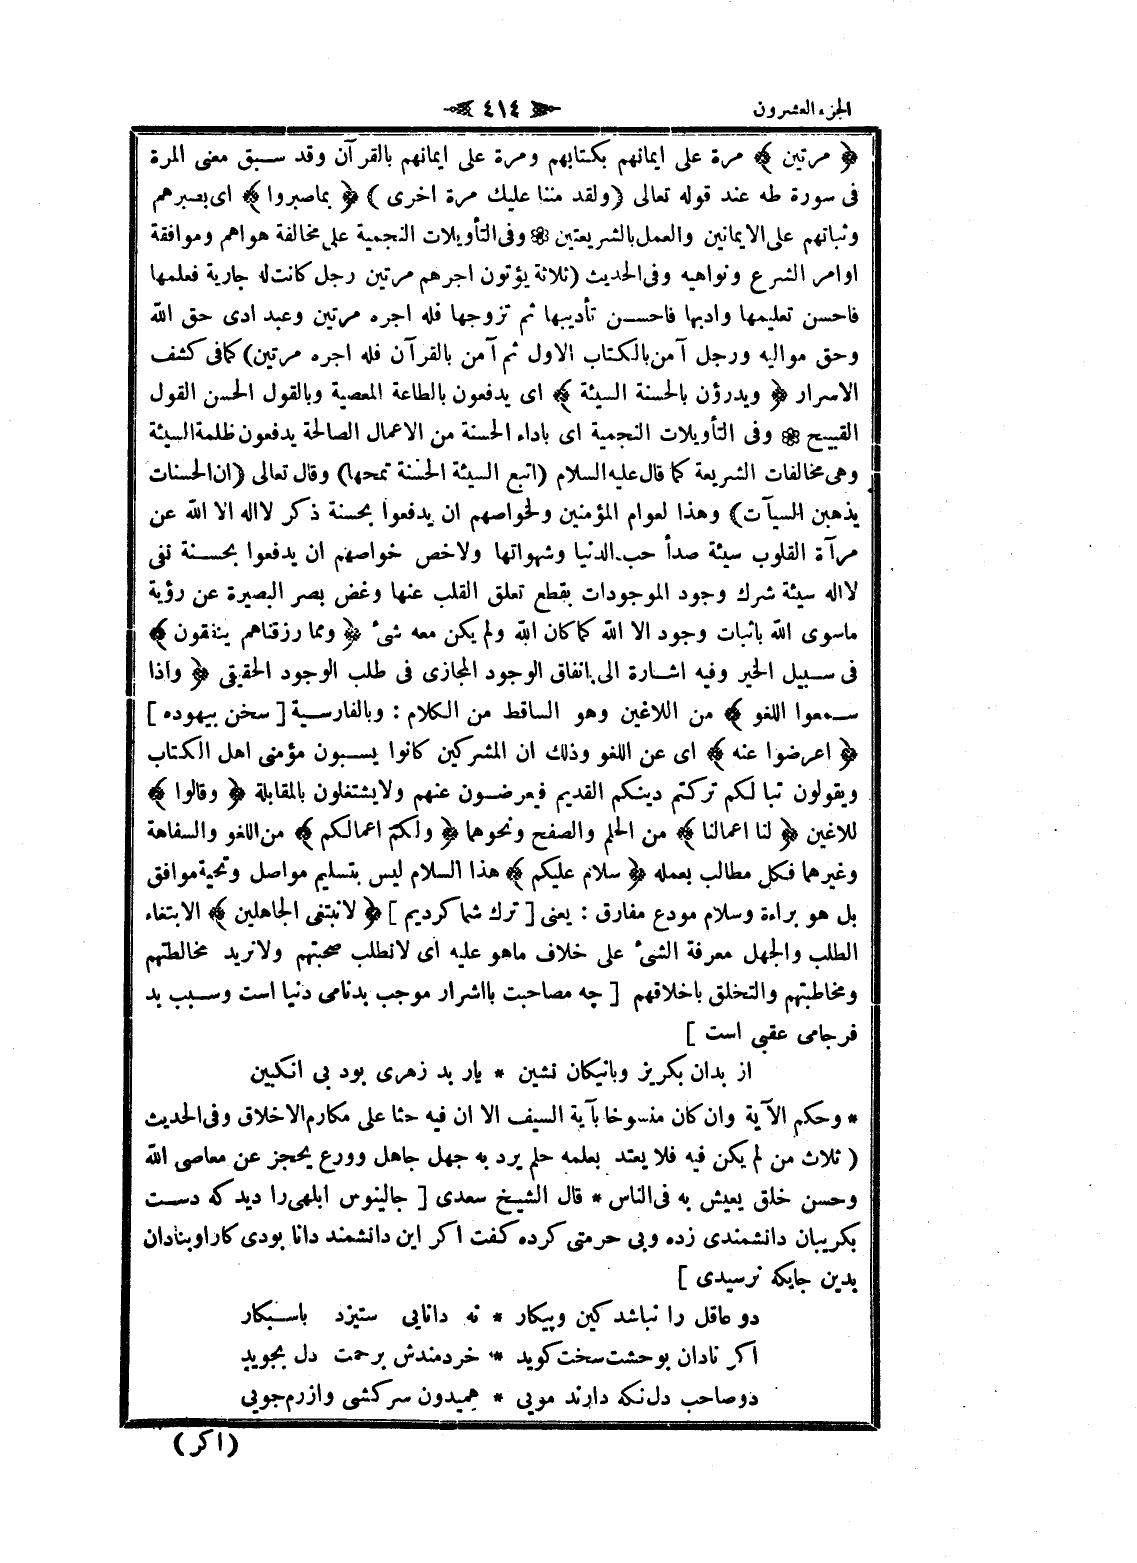 الجزء العشرون
٤١٤
﴿ مرتين ﴾ مرة على ايمانهم بكتابهم ومرة على ايمانهم بالقرآن وقد سبق معنى المرة
فى سورة طه عند قوله تعالى (ولقد مننا عليك مرة اخرى) ﴿ بماصبروا ﴾ اى بصبرهم
وثباتهم على الايمانين والعمل بالشريعتين ❁ وفى التأويلات النجمية على مخالفة هواهم وموافقة
اوامر الشرع ونواهيه وفى الحديث (ثلاثة يؤتون اجرهم مرتين رجل كانت له جارية فعلمها
فاحسن تعليمها وادبها فاحسن تأديبها ثم تزوجها فله اجره مرتين وعبد ادى حق الله
وحق مواليه ورجل آمن بالكتاب الاول ثم آمن بالقرآن فله اجره مرتين) كمافى كشف
الاسرار ﴿ ويدرؤن بالحسنة السيئة ﴾ اى يدفعون بالطاعة المعصية وبالقول الحسن القول
القبيح ❁ وفى التأويلات النجمية اى باداء الحسنة من الاعمال الصالحة يدفعون ظلمة السيئة
وهى مخالفات الشريعة كما قال عليه السلام (اتبع السيئة الحسنة تمحها) وقال تعالى (ان الحسنات
يذهبن السيآت) وهذا لعوام المؤمنين ولخواصهم ان يدفعوا بحسنة ذكر لااله الا الله عن
مرآة القلوب سيئة صدأ حب الدنيا وشهواتها ولاخص خواصهم ان يدفعوا بحسنة نفى
لااله سيئة شرك وجود الموجودات بقطع تعلق القلب عنها وغض بصر البصيرة عن رؤية
ماسوى الله باثبات وجود الا الله كما كان الله ولم يكن معه شىء ﴿ ومما رزقناهم ينفقون ﴾
فى سبيل الخير وفيه اشارة الى انفاق الوجود المجازى فى طلب الوجود الحقيقى ﴿ واذا
سمعوا اللغو ﴾ من اللاغين وهو الساقط من الكلام : وبالفارسية [ سخن بيهوده ]
﴿ اعرضوا عنه ﴾ اى عن اللغو وذلك ان المشركين كانوا يسبون مؤمنى اهل الكتاب
ويقولون تبا لكم تركتم دينكم القديم فيعرضون عنهم ولايشتغلون بالمقابلة ﴿ وقالوا ﴾
للاغين ﴿ لنا اعمالنا ﴾ من الحلم والصفح ونحوهما ﴿ ولكم اعمالكم ﴾ من اللغو والسفاهة
وغيرهما فكل مطالب بعمله ﴿ سلام عليكم ﴾ هذا السلام ليس بتسليم مواصل وتحية موافق
بل هو براءة وسلام مودع مفارق : يعنى [ ترك شما كرديم ] ﴿ لانبتغى الجاهلين ﴾ الابتغاء
الطلب والجهل معرفة الشىء على خلاف ماهو عليه اى لانطلب صحبتهم ولانريد مخالطتهم
ومخاطبتهم والتخلق باخلاقهم [ چه مصاحبت بااشرار موجب بدنامى دنيا است وسبب بد
فرجامى عقبى است ]
از بدان بكريز وبانيكان نشين * يار بد زهرى بود بى انكبين
* وحكم الآية وان كان منسوخا بآية السيف الا ان فيه حثا على مكارم الاخلاق وفى الحديث
( ثلاث من لم يكن فيه فلا يعتد بعلمه حلم يرد به جهل جاهل وورع يحجز عن معاصى الله
وحسن خلق يعيش به فى الناس * قال الشيخ سعدى [ جالينوس ابلهى را ديد كه دست
بكريبان دانشمندى زده وبى حرمتى كرده كفت اكر اين دانشمند دانا بودى كار او بنادان
بدين جايكه نرسيدى ]
دو عاقل را نباشد كين وپيكار * نه دانايى ستيزد باسبكار
اكر نادان بوحشت سخت كويد * خردمندش برحمت دل بجويد
دو صاحب دل نكه دارند مويى * هميدون سركشى وازرم جويى
(اكر)